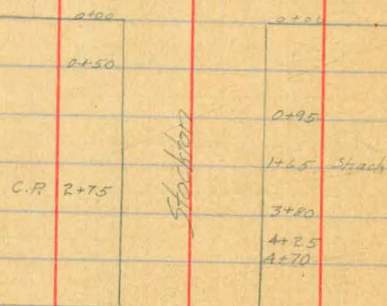 0+00
0+50
C.P. 2+75
Stockton
0+00
0+95
1+65 Shack
3+80
4+25
4+70